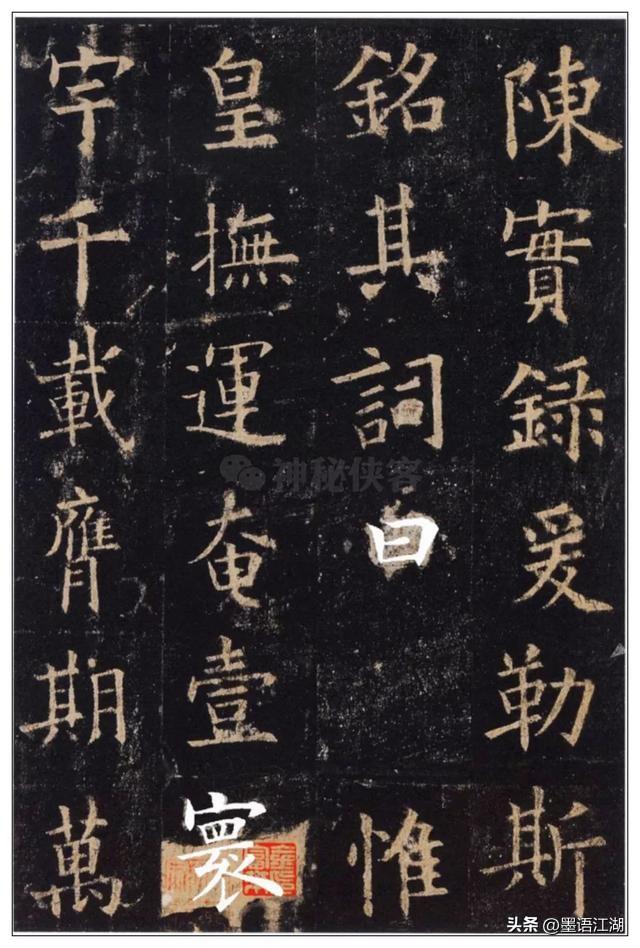 陳實録爰勒斯
銘其詞曰 惟
皇撫運奄壹寰
宇千載膺期萬
神秘侠客
头条 @墨语江湖